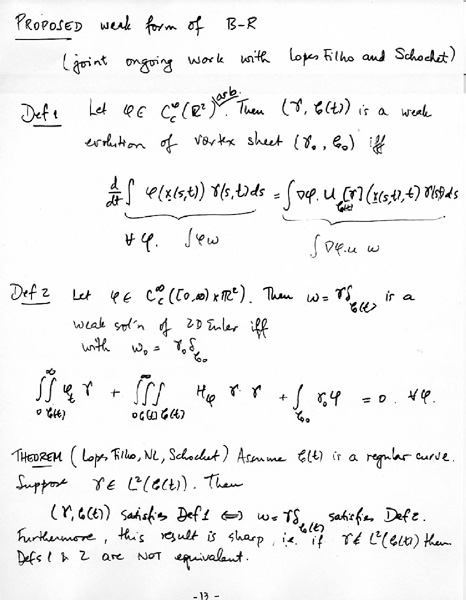 PROPOSED weak form of B-R
(joint ongoing work with Lopes Filho and Schochet)
Def 1 Let φ ∈ C_c^∞(ℝ²) arb. Then (γ, C(t)) is a weak
evolution of vortex sheet (γ₀, C₀) iff
d/dt ∫ φ(x(s,t)) γ(s,t) ds = ∫ ∇φ . U_{C(t)}[γ](x(s,t),t) γ(s,t) ds
∀ φ. ∫φω ∫∇φ.u ω
Def 2 Let φ ∈ C_c^∞([0,∞) × ℝ²). Then ω = γδ_{C(t)} is a
weak sol'n of 2D Euler iff
with ω₀ = γ₀δ_{C₀}
∫₀^∞∫_{C(t)} φ_t γ + ∫₀^∞∫_{C(t)}∫_{C(t)} H_φ γ γ + ∫_{C₀} γ₀φ = 0. ∀φ.
THEOREM (Lopes Filho, NL, Schochet) Assume C(t) is a regular curve.
Suppose γ ∈ L²(C(t)). Then
(γ, C(t)) satisfies Def 1 ⟺ ω = γδ_{C(t)} satisfies Def 2.
Furthermore, this result is sharp, i.e. if γ ∉ L²(C(t)) then
Defs 1 & 2 are NOT equivalent.
- 13 -